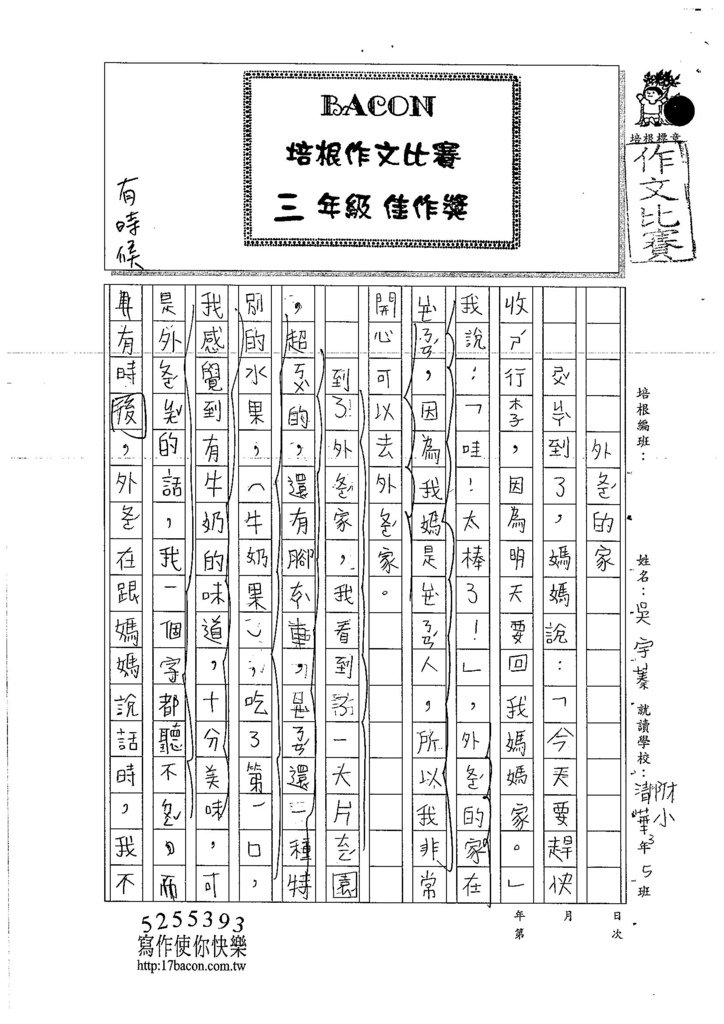 BACON
培根作文比賽
三年級 佳作獎
有時候
培根標章
作文比賽
培根編班：
姓名：吳宇蓁
就讀學校：清華附小 3年5班
日 月 年
次 第
外爸的家
到了，媽媽說：「今天要趕快
收ㄕ行李，因為明天要回我媽媽家。」
我說：「哇！太棒了！」，外爸的家在
，因為我媽是人，所以我非常
開心可以去外爸家。
到了外爸家，我看到一大片園
，超的，還有腳車，是還一種特
別的水果，（牛奶果），吃了第一口，
我感覺到有牛奶的味道，十分美味，可
是外爸的話，我一個字都聽不，而
且有時後，外爸在跟媽媽說話時，我不
5255393
寫作使你快樂
http:17bacon.com.tw